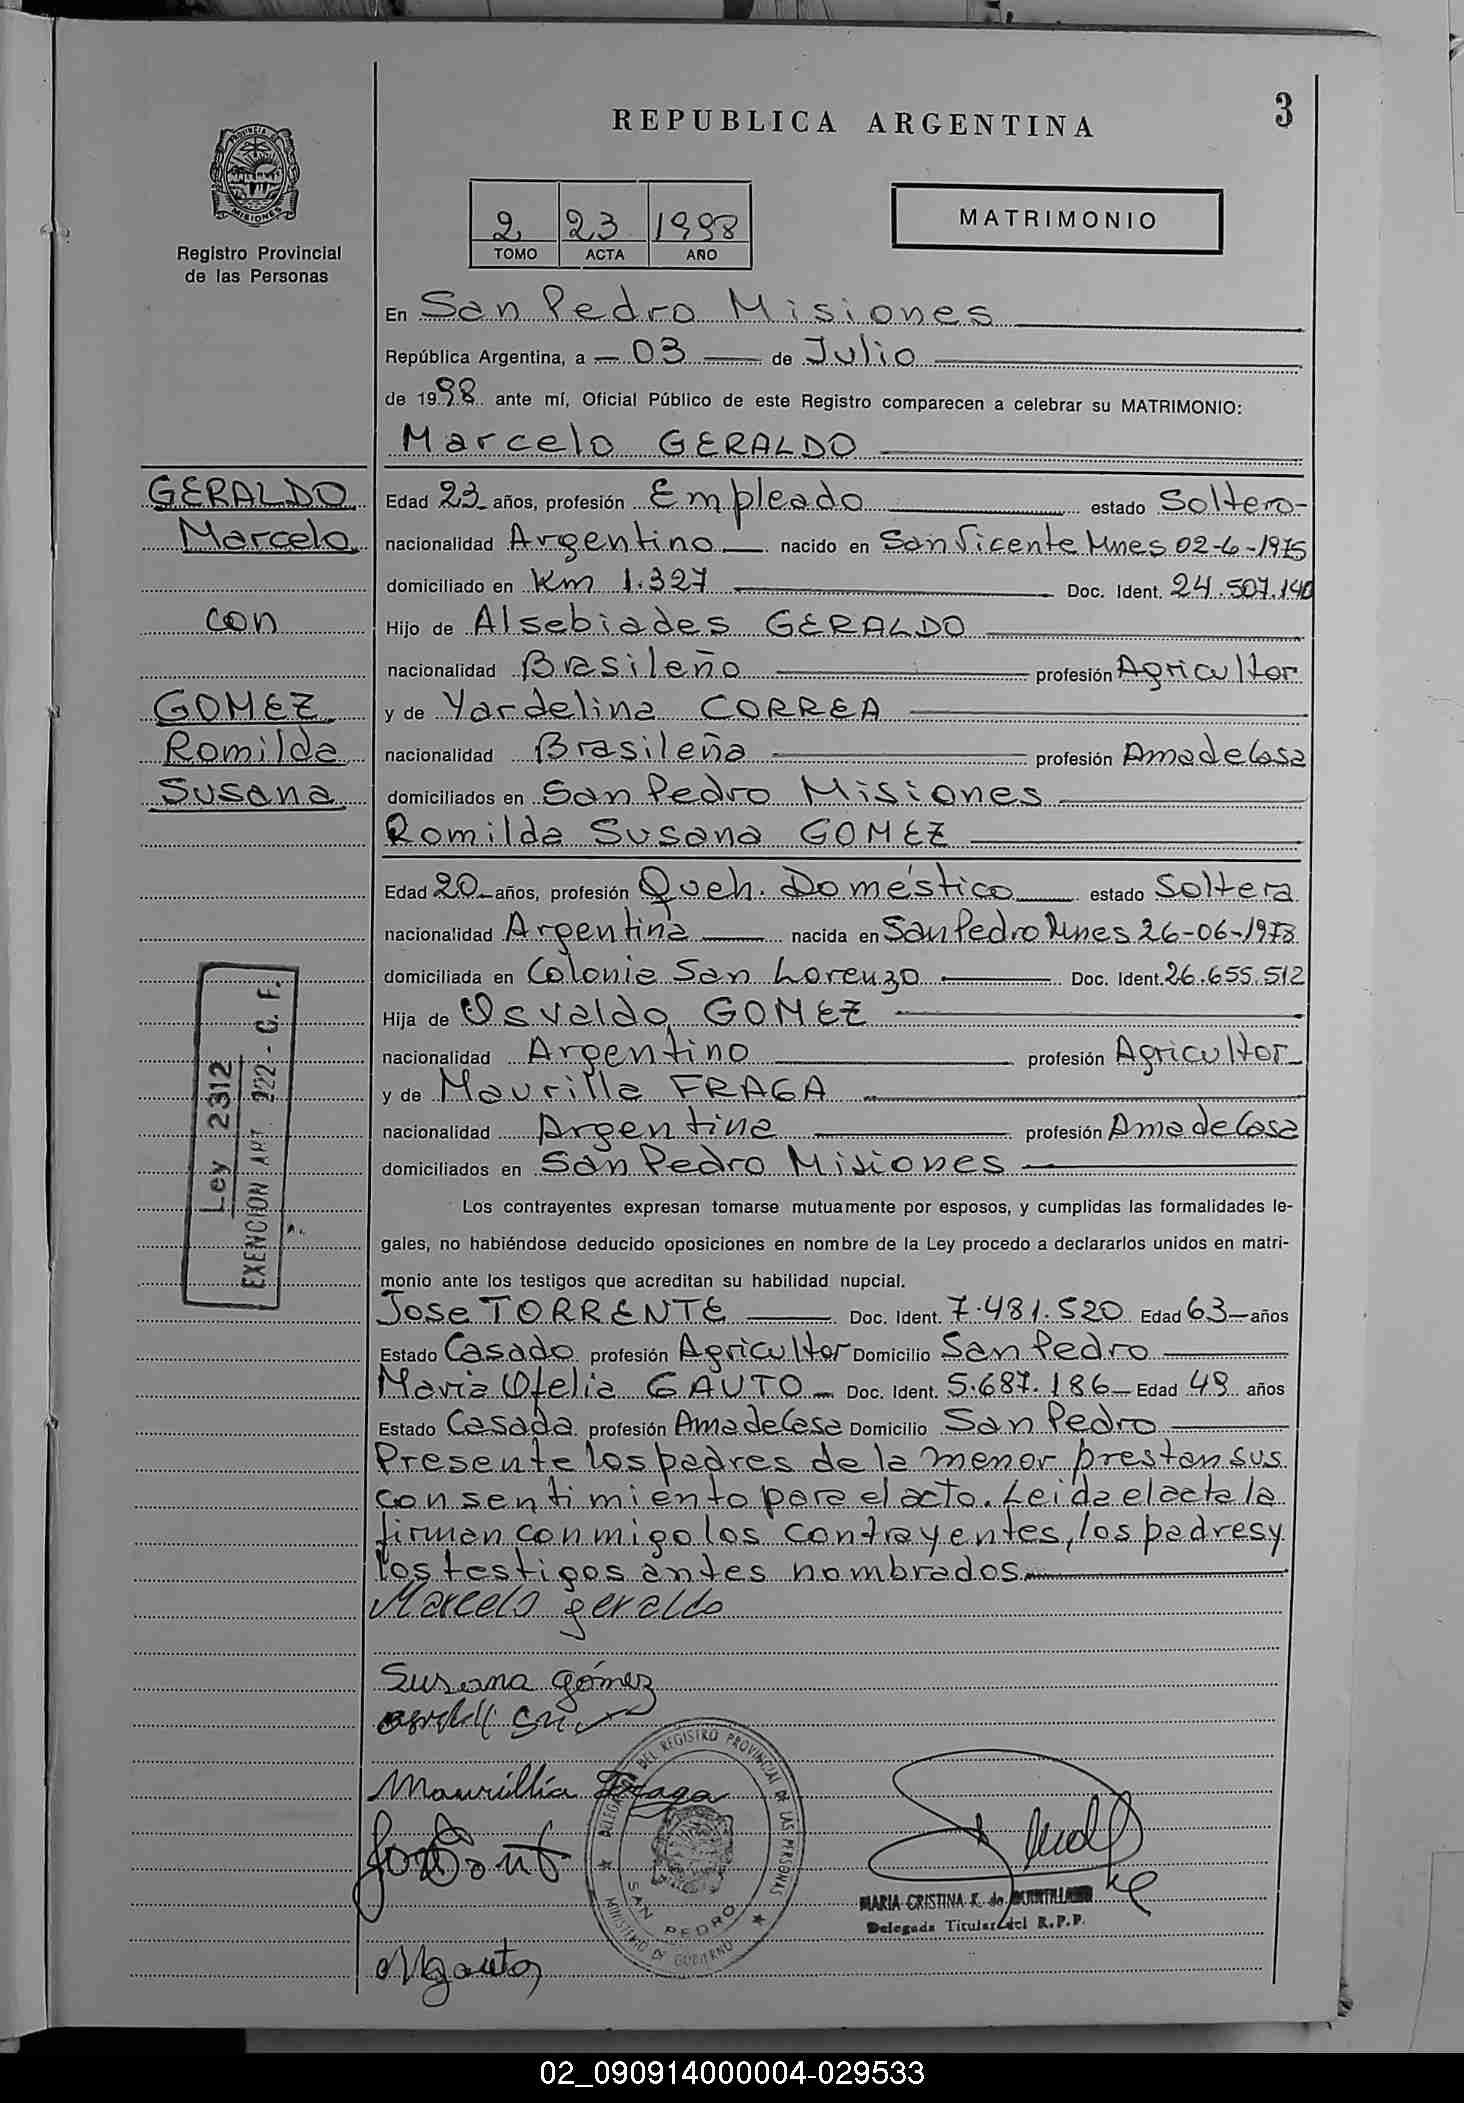 3
REPUBLICA ARGENTINA
PROVINCIA DE
MISIONES
Registro Provincial
de las Personas
2 23 1998
TOMO ACTA AÑO
MATRIMONIO
En San Pedro Misiones
República Argentina, a 03 de Julio
de 1998 ante mí, Oficial Público de este Registro comparecen a celebrar su MATRIMONIO:
Marcelo GERALDO
GERALDO
Marcelo
con
GOMEZ
Romilda
Susana
Edad 23 años, profesión Empleado estado Soltero-
nacionalidad Argentino nacido en San Vicente Mnes 02-6-1975
domiciliado en Km 1.327 Doc. Ident. 24.507.140
Hijo de Alsebiades GERALDO
nacionalidad Brasileño profesión Agricultor
y de Yardelina CORREA
nacionalidad Brasileña profesión Ama de Casa
domiciliados en San Pedro Misiones
Romilda Susana GOMEZ
Edad 20 años, profesión Queh. Doméstico estado Soltera
nacionalidad Argentina nacida en San Pedro Mnes 26-06-1978
domiciliada en Colonia San Lorenzo Doc. Ident. 26.655.512
Hija de Osvaldo GOMEZ
nacionalidad Argentino profesión Agricultor
y de Maurilla FRAGA
nacionalidad Argentina profesión Ama de Casa
domiciliados en San Pedro Misiones
Ley 2312
EXENCION ART. 222 - C. F.
Los contrayentes expresan tomarse mutuamente por esposos, y cumplidas las formalidades le-
gales, no habiéndose deducido oposiciones en nombre de la Ley procedo a declararlos unidos en matri-
monio ante los testigos que acreditan su habilidad nupcial.
Jose TORRENTE Doc. Ident. 7.481.520 Edad 63 años
Estado Casado profesión Agricultor Domicilio San Pedro
Maria Ofelia GAUTO Doc. Ident. 5.687.186 Edad 48 años
Estado Casada profesión Ama de Casa Domicilio San Pedro
Presente los padres de la menor prestan sus
consentimiento para el acto. Leida el acta la
firman conmigo los contrayentes, los padres y
los testigos antes nombrados
Marcelo geraldo
Susana gómez
Maurillia Fraga
DELEGACION DEL REGISTRO PROVINCIAL DE LAS PERSONAS
SAN PEDRO
MINISTERIO DE GOBIERNO
MARIA CRISTINA K. de
Delegada Titular del R.P.P.
Mgauto
02_090914000004-029533